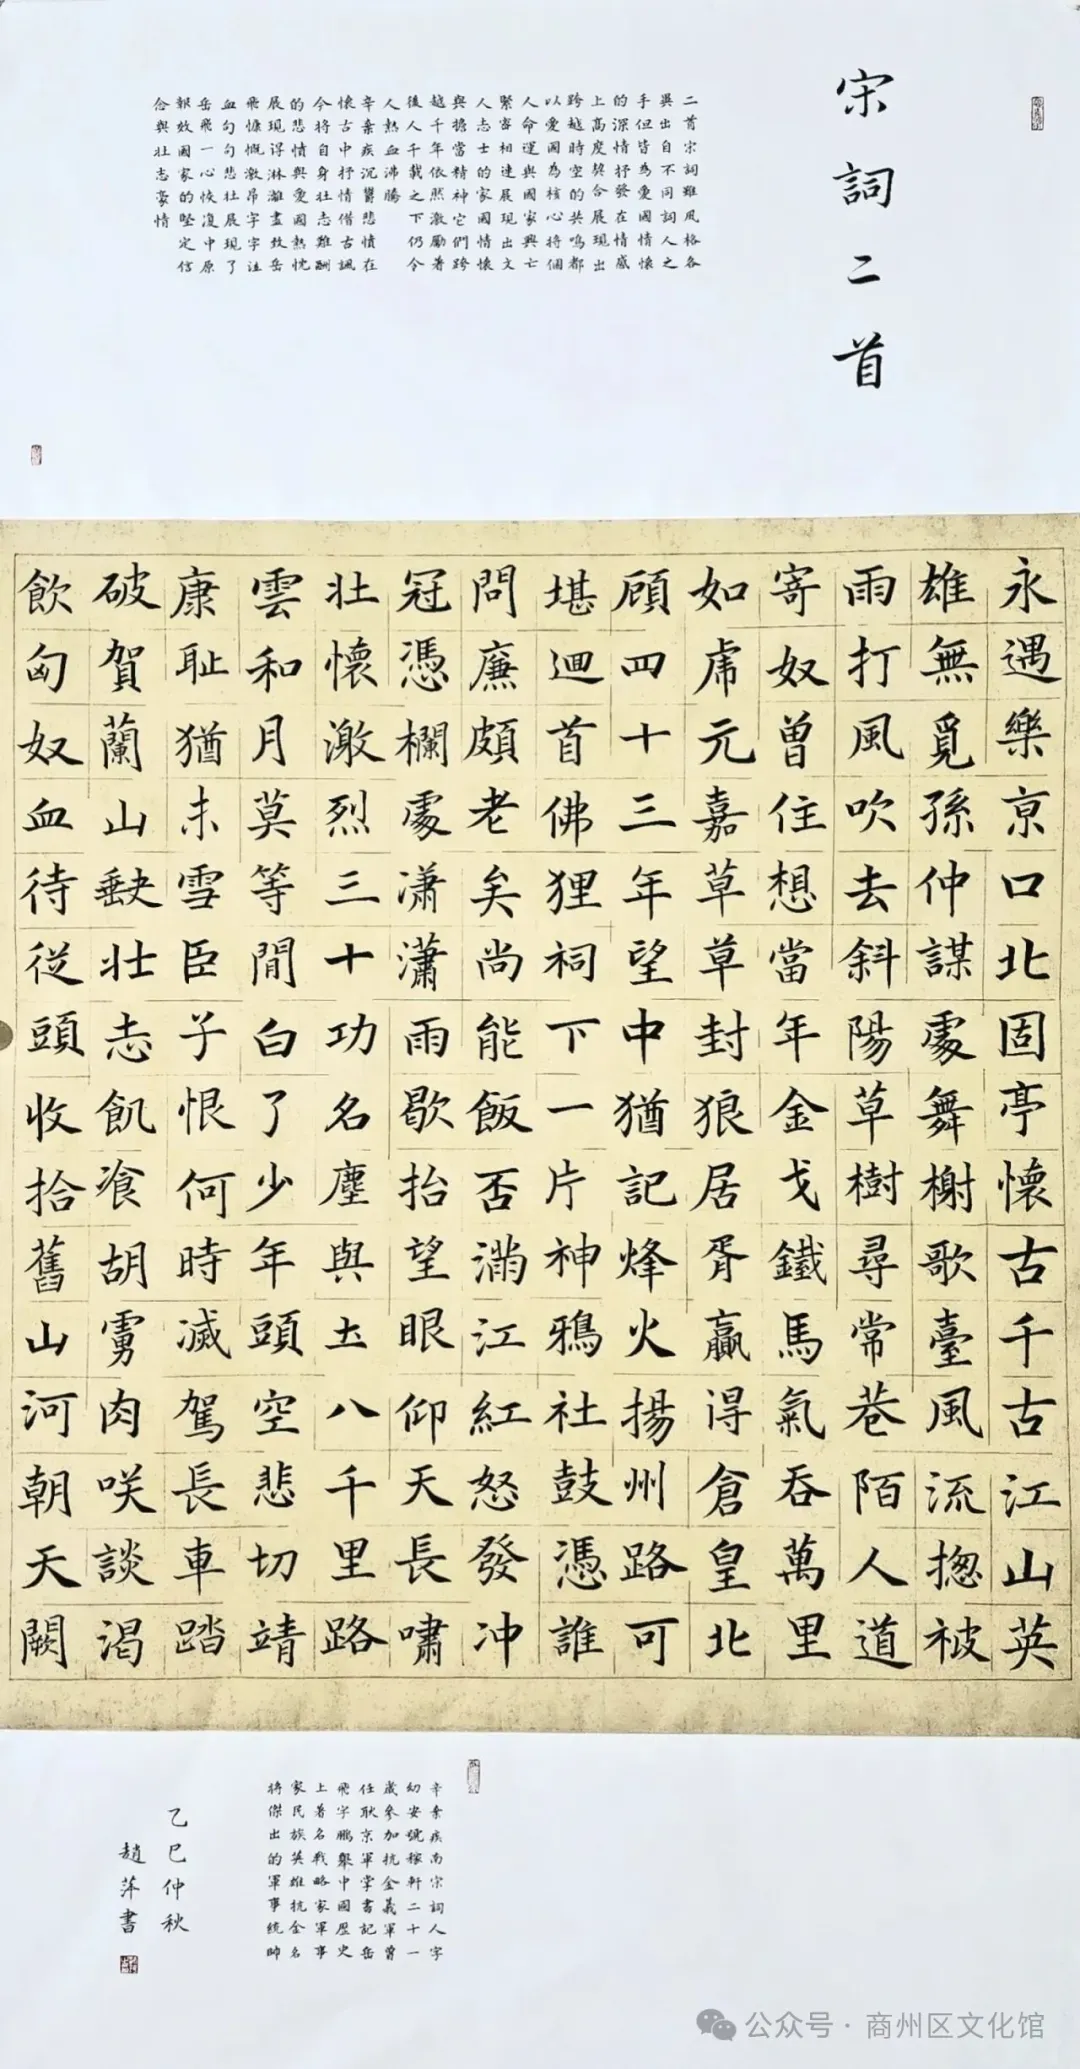 宋詞二首
二首宋詞雖風格各
異出自不同詞人之
手但皆為愛國情懷
的深情抒發在情感
上高度契合展現出
跨越時空的共鳴都
以愛國為核心將個
人命運與國家興亡
緊密相連展現出文
人志士的家國情懷
與擔當精神它們跨
越千年依然激勵著
後人千載之下仍令
人熱血沸騰
辛棄疾沉鬱悲憤在
懷古中抒情借古諷
今將自身壯志難酬
的悲情與愛國熱忱
展現得淋漓盡致岳
飛慷慨激昂字字泣
血句句悲壯展現了
岳飛一心恢復中原
報效國家的堅定信
念與壯志豪情
永遇樂京口北固亭懷古千古江山英
雄無覓孫仲謀處舞榭歌臺風流揔被
雨打風吹去斜陽草樹尋常巷陌人道
寄奴曾住想當年金戈鐵馬氣吞萬里
如虎元嘉草草封狼居胥贏得倉皇北
顧四十三年望中猶記烽火揚州路可
堪迴首佛狸祠下一片神鴉社鼓憑誰
問廉頗老矣尚能飯否滿江紅怒發冲
冠憑欄處瀟瀟雨歇抬望眼仰天長嘯
壯懷激烈三十功名塵與土八千里路
雲和月莫等閒白了少年頭空悲切靖
康耻猶未雪臣子恨何時滅駕長車踏
破賀蘭山缺壯志飢飡胡虜肉咲談渴
飲匈奴血待從頭收拾舊山河朝天闕
辛棄疾南宋詞人字
幼安號稼軒二十一
歲參加抗金義軍曾
任耿京軍掌書記岳
飛字鵬舉中國歷史
上著名戰略家軍事
家民族英雄抗金名
將傑出的軍事統帥
乙巳仲秋
趙萍書
公众号·商州区文化馆